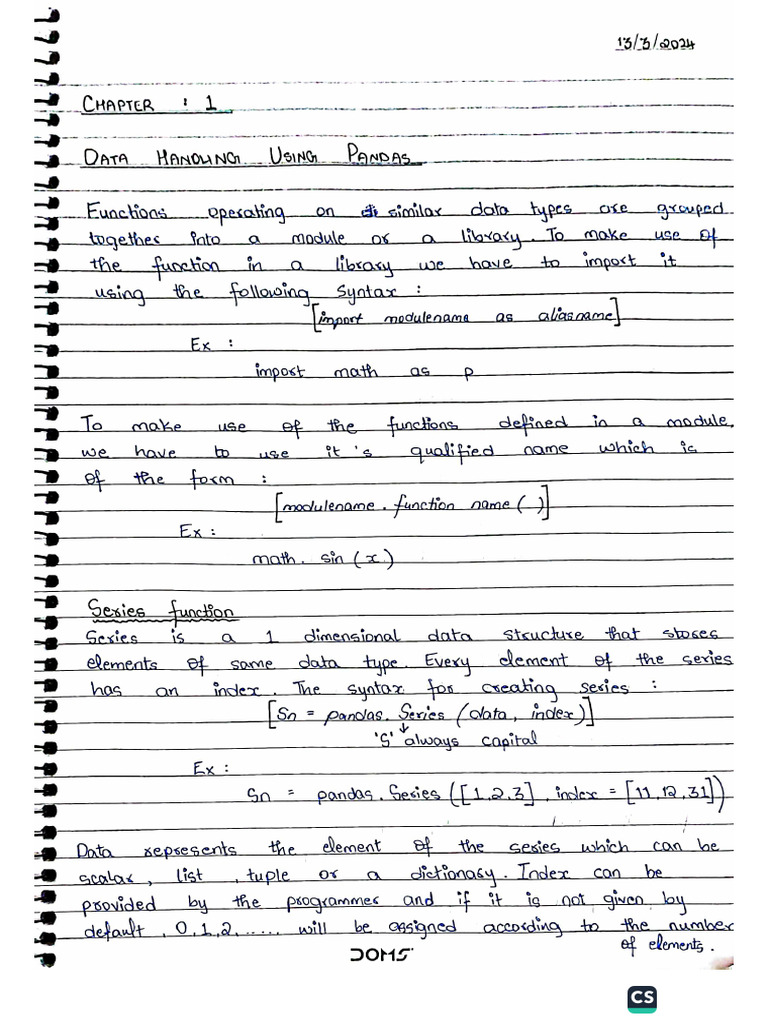 13/3/2024
CHAPTER : 1
DATA HANDLING USING PANDAS
Functions operating on similar data types are grouped
together into a module or a library. To make use of
the function in a library we have to import it
using the following syntax :
[import modulename as aliasname]
Ex :
import math as p
To make use of the functions defined in a module,
we have to use it's qualified name which is
of the form :
[modulename . function name ( )]
Ex :
math. sin (x)
Series function
Series is a 1 dimensional data structure that stores
elements of same data type. Every element of the series
has an index. The syntax for creating series :
[Sn = pandas. Series (data, index)]
'S' always capital
Ex :
Sn = pandas. Series ([1,2,3] , index = [11,12,31])
Data represents the element of the series which can be
scalar , list , tuple or a dictionary. Index can be
provided by the programmer and if it is not given by
default , 0,1,2, ..... will be assigned according to the number
of elements.
DOMS
CS